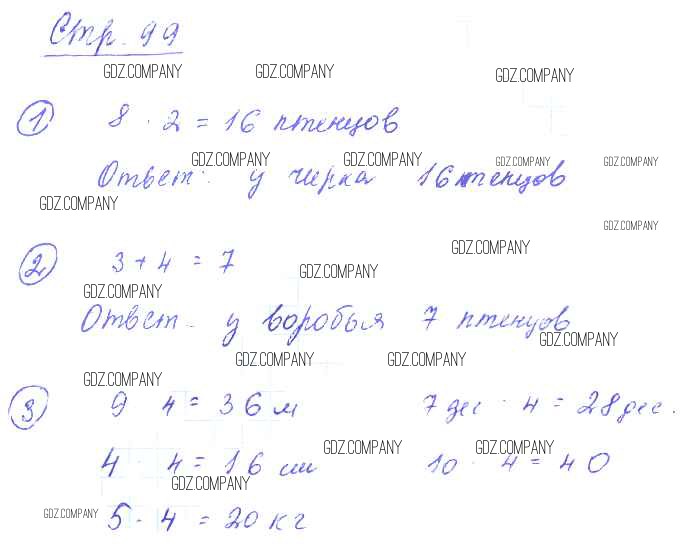 Стр. 99
GDZ.COMPANY GDZ.COMPANY GDZ.COMPANY
1 8 · 2 = 16 птенцов
GDZ.COMPANY GDZ.COMPANY GDZ.COMPANY GDZ.COMPANY
Ответ: у чирка 16 птенцов
GDZ.COMPANY
GDZ.COMPANY
GDZ.COMPANY
2 3 + 4 = 7
GDZ.COMPANY
GDZ.COMPANY
Ответ: у воробья 7 птенцов
GDZ.COMPANY
GDZ.COMPANY GDZ.COMPANY
GDZ.COMPANY
3 9 4 = 36 м 7 дес · 4 = 28 дес.
GDZ.COMPANY GDZ.COMPANY
4 · 4 = 16 см 10 · 4 = 40
GDZ.COMPANY
GDZ.COMPANY
5 · 4 = 20 кг